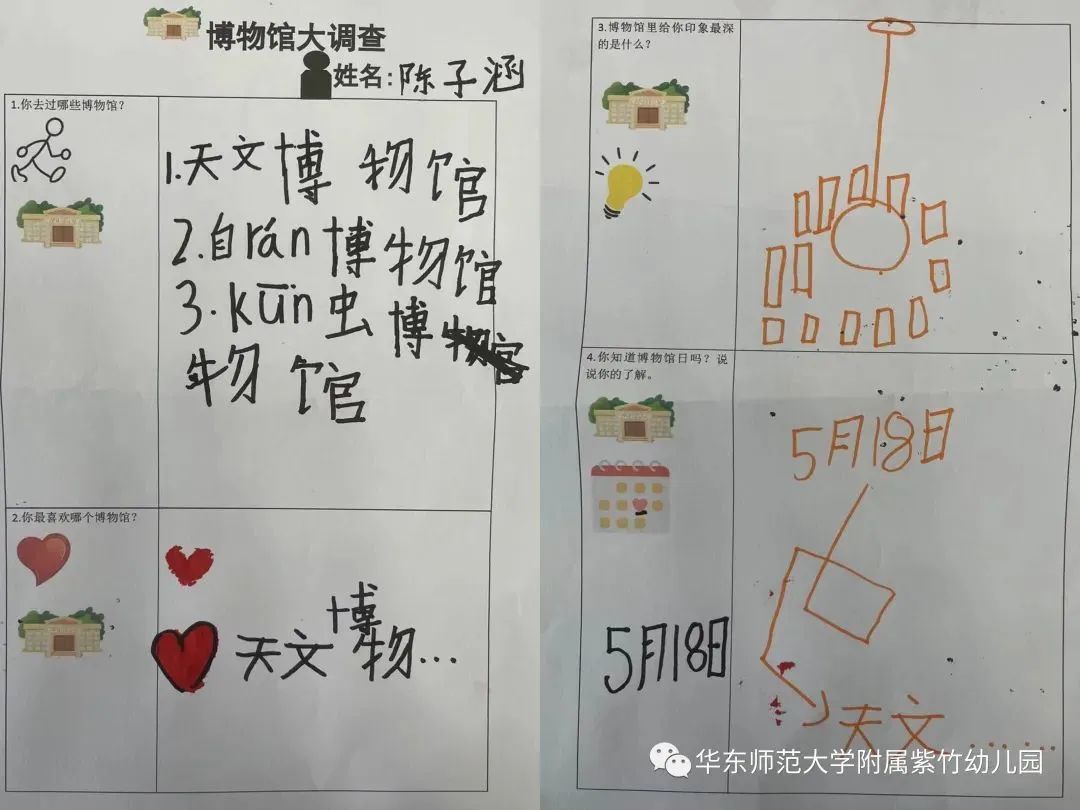 博物馆大调查
姓名:陈子涵
1.你去过哪些博物馆？
1.天文博物馆
2.自rán博物馆
3.kūn虫博
物馆
2.你最喜欢哪个博物馆？
天文博物...
3.博物馆里给你印象最深
的是什么？
4.你知道博物馆日吗？说
说你的了解。
5月18日
5月18日
天文......
华东师范大学附属紫竹幼儿园